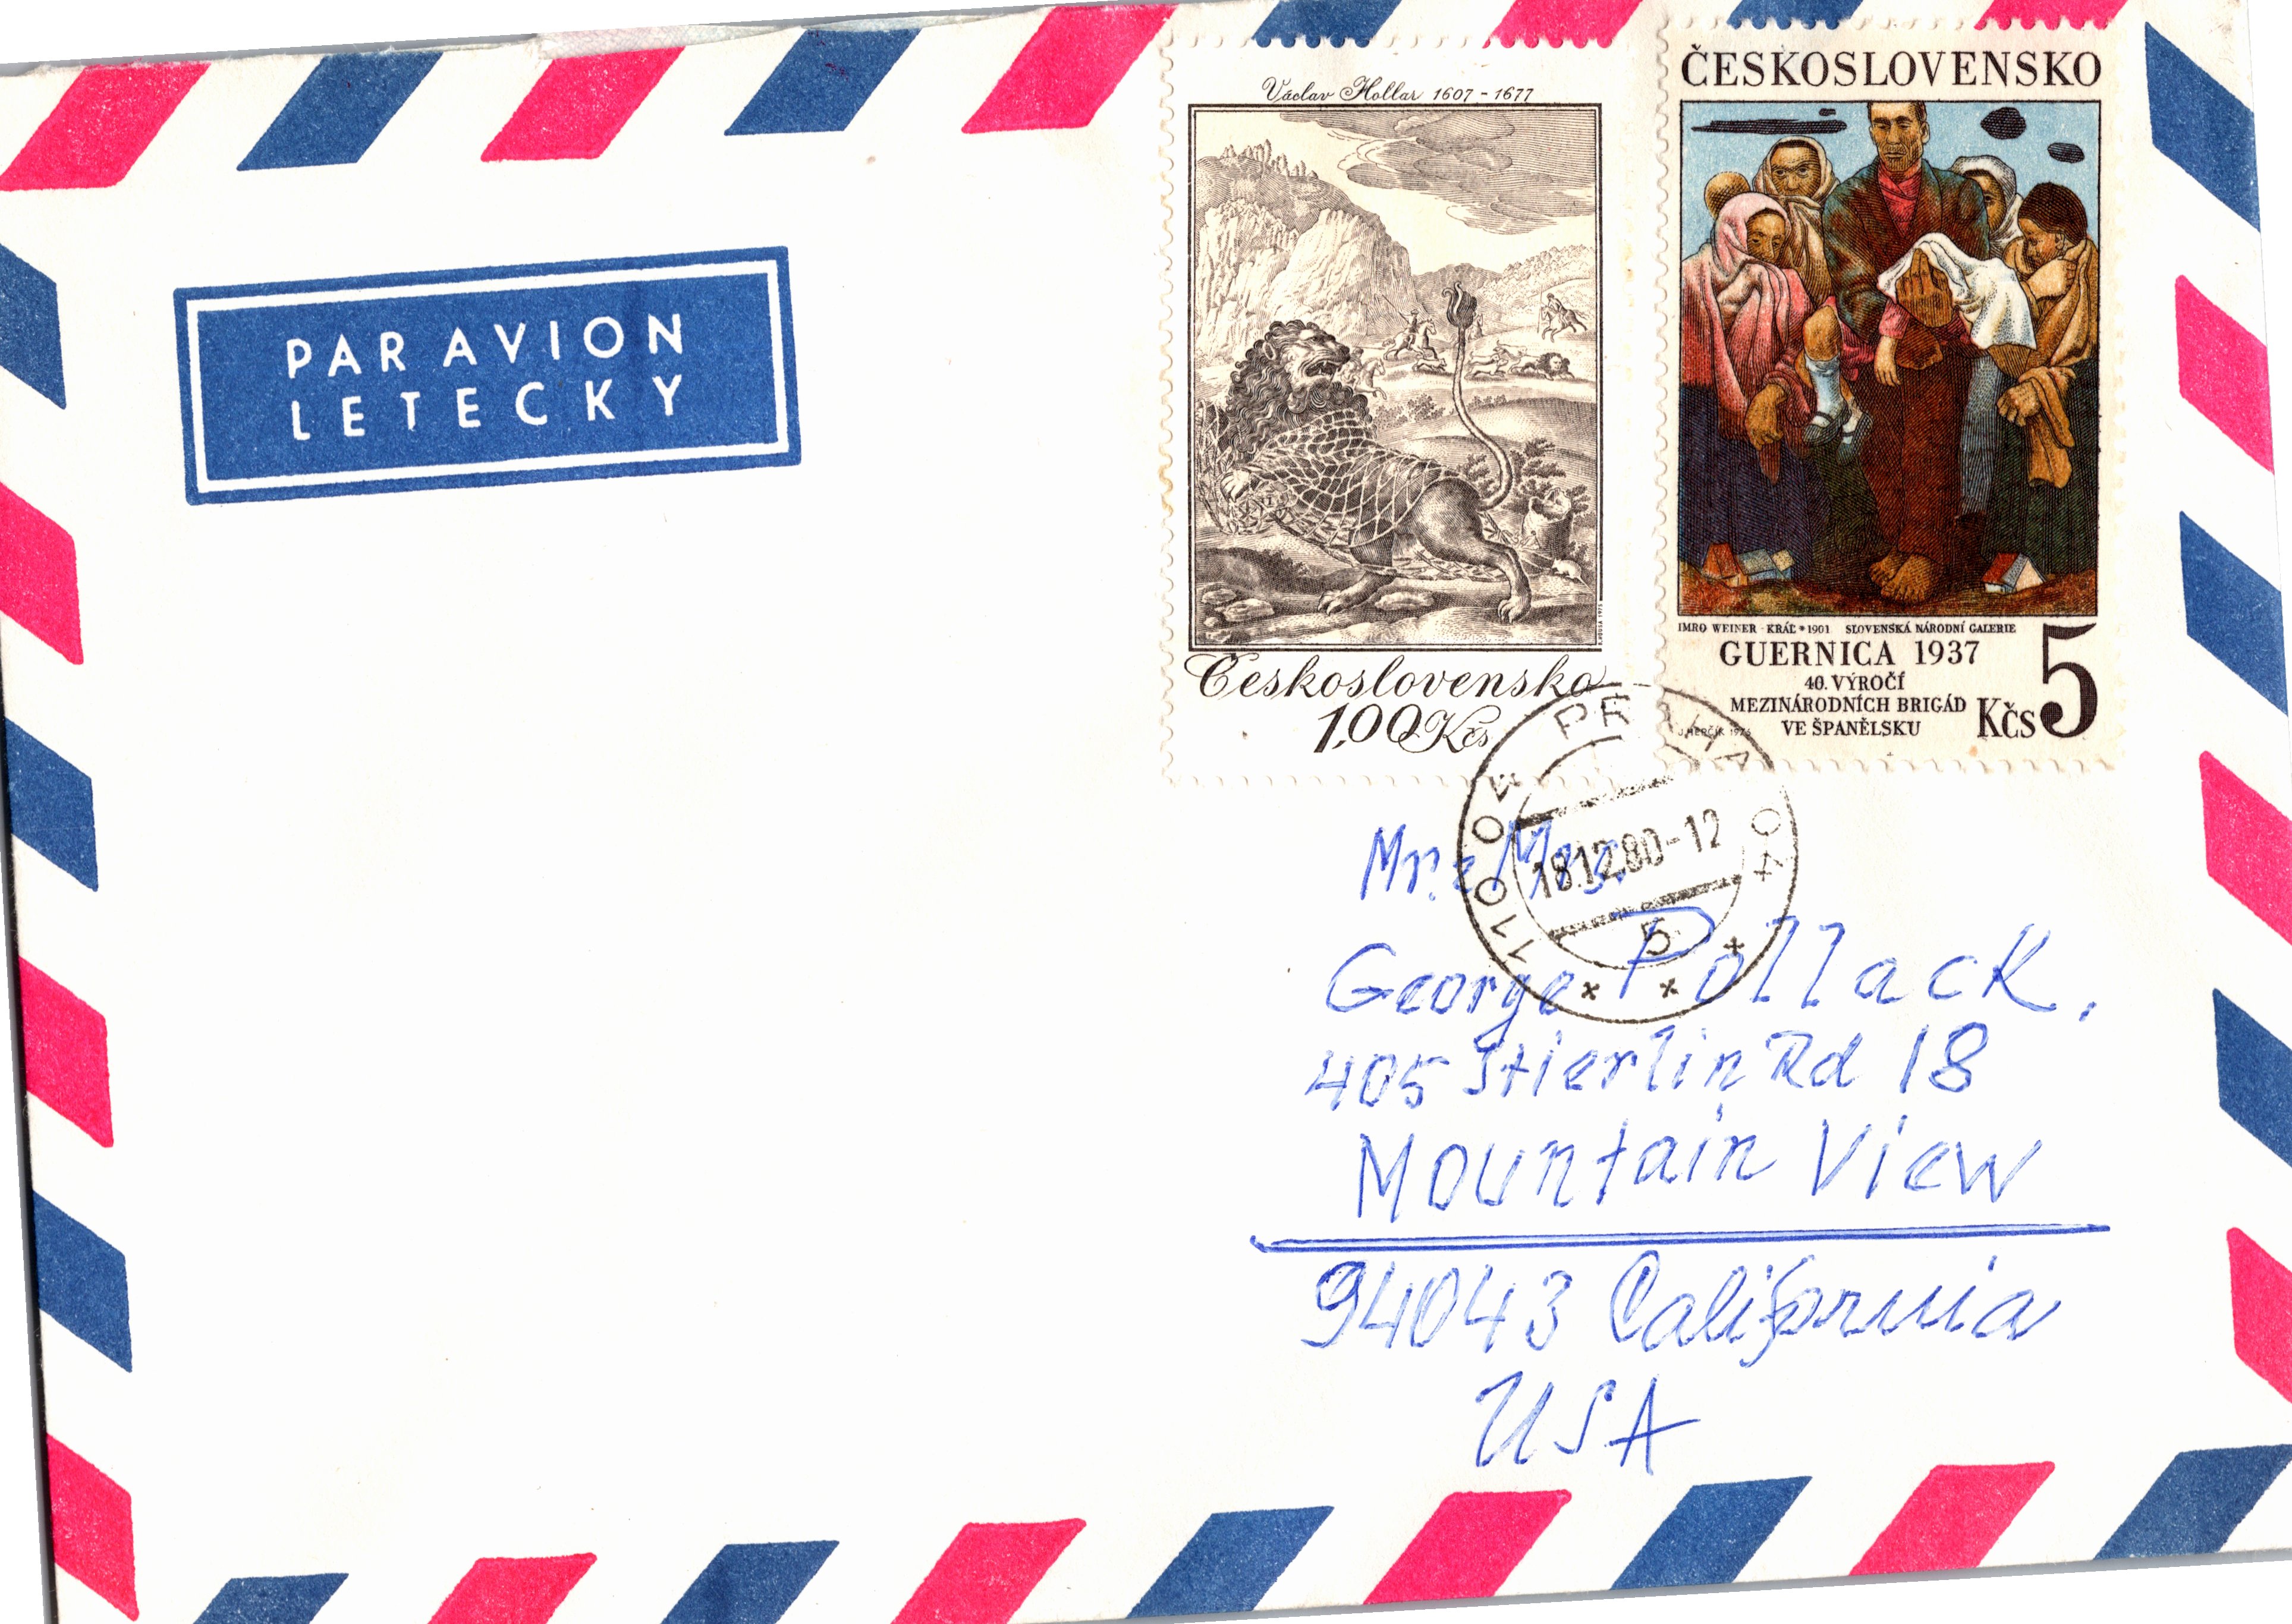 PAR AVION
LETECKY
Václav Hollar 1607 - 1677
Československo
1,00 Kčs
ČESKOSLOVENSKO
IMRO WEINER - KRÁĽ * 1901 SLOVENSKÁ NÁRODNÍ GALERIE
GUERNICA 1937
40. VÝROČÍ
MEZINÁRODNÍCH BRIGÁD
VE ŠPANĚLSKU
Kčs 5
J. HERČÍK 1976
PRAHA 04
110 04
18.12.80-12
5
Mr. Mrs.
George Pollack,
405 Stierlin Rd 18
Mountain View
94043 California
USA